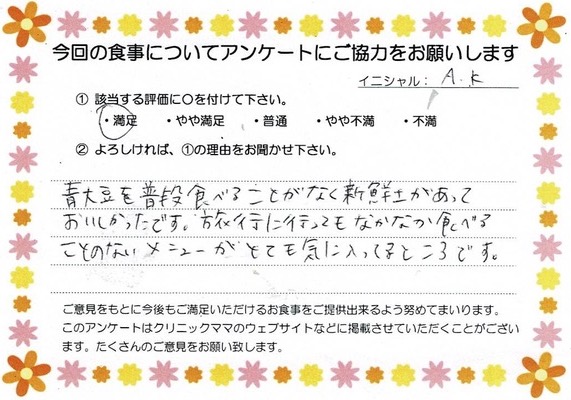 今回の食事についてアンケートにご協力をお願いします
イニシャル： A.K
① 該当する評価に〇を付けて下さい。
・満足 ・やや満足 ・普通 ・やや不満 ・不満
② よろしければ、①の理由をお聞かせ下さい。
青大豆を普段食べることがなく新鮮土があって
おいしかったです。旅行に行ってもなかなか食べる
ことのないメニューがとても気に入ってるところです。
ご意見をもとに今後もご満足いただけるお食事をご提供出来るよう努めてまいります。
このアンケートはクリニックママのウェブサイトなどに掲載させていただくことがござい
ます。たくさんのご意見をお願い致します。